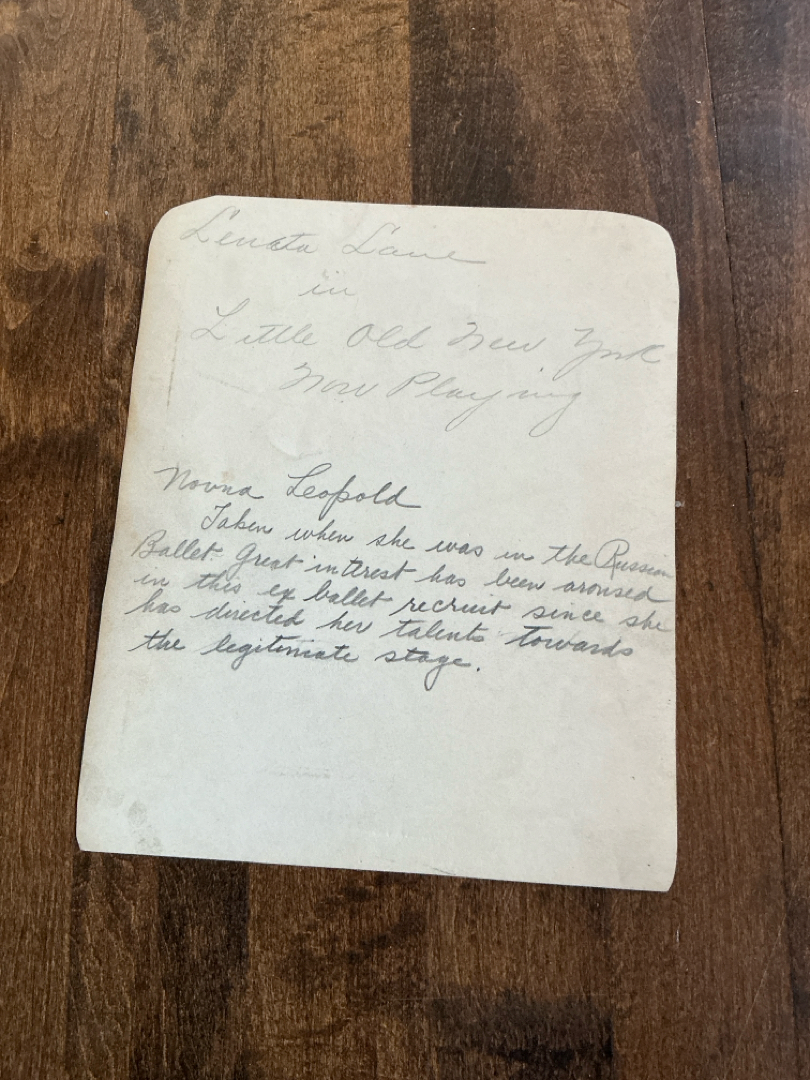 Lenata Lane
in
Little Old New York
Now Playing
Novna Leopold
Taken when she was in the Russian
Ballet. Great interest has been aroused
in this ex ballet recruit since she
has directed her talents towards
the legitimate stage.